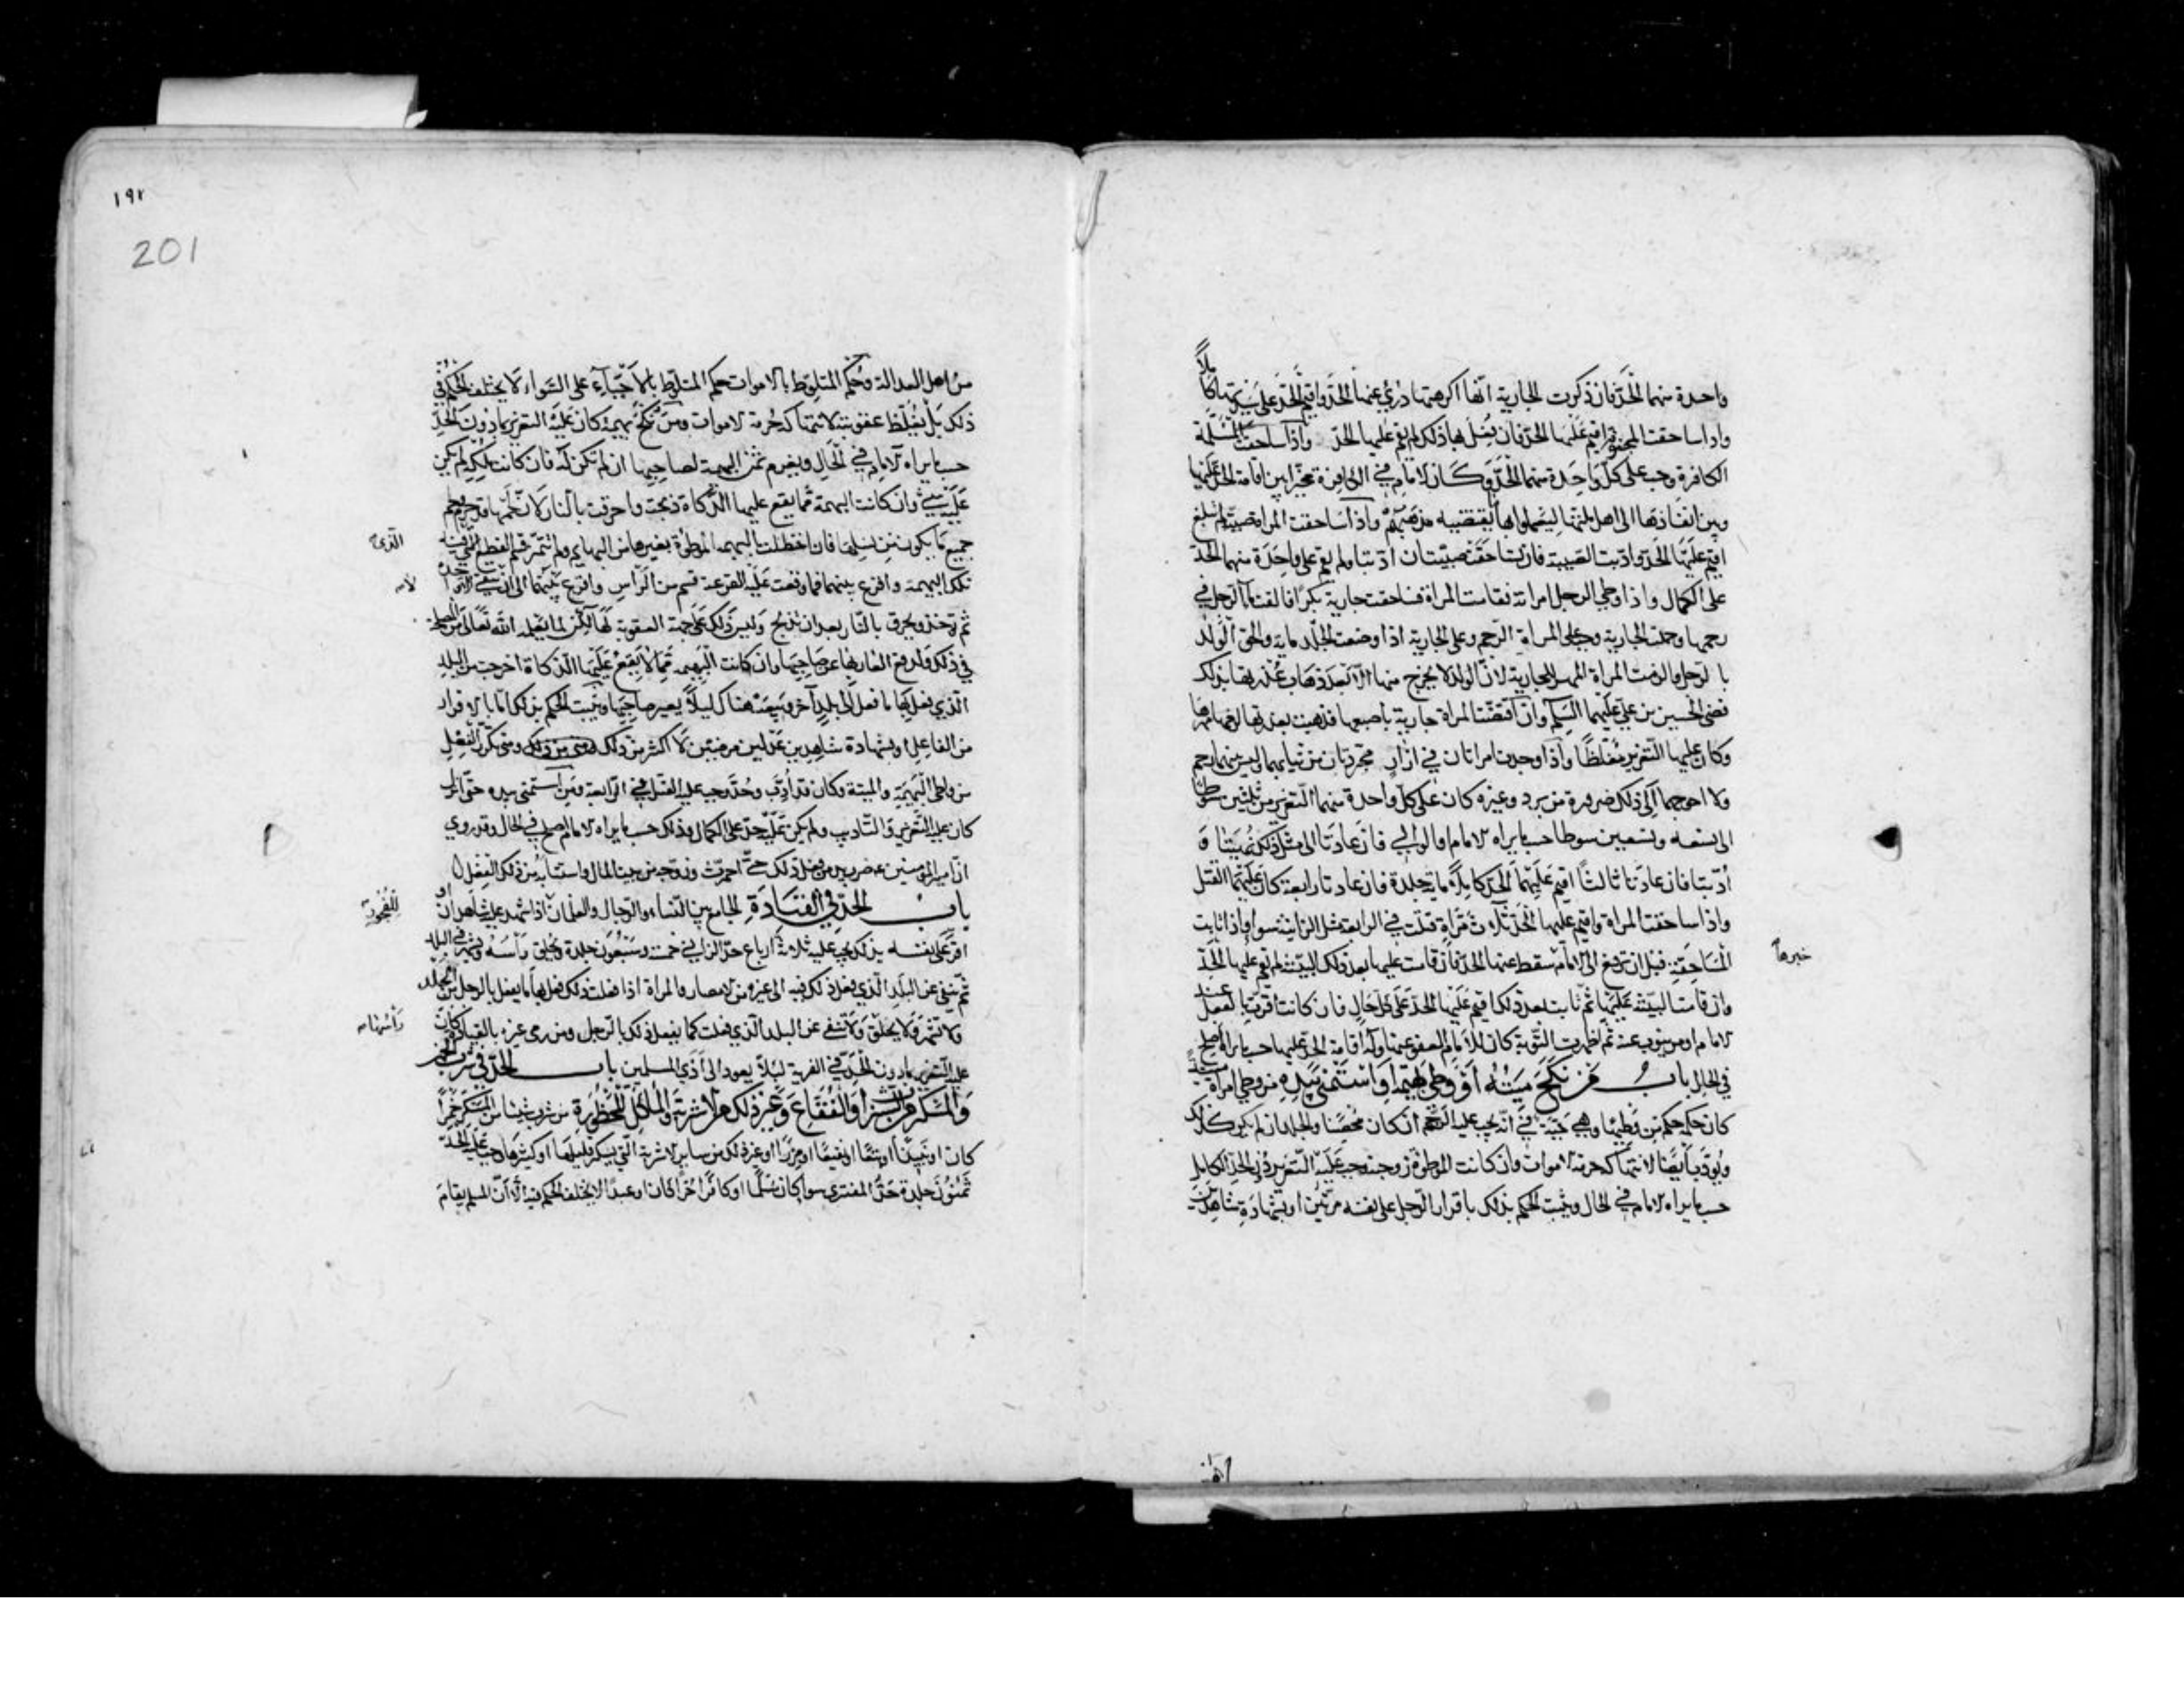 واحدة منهما الحد فان ذكرت الجارية انها اكرهتها درئ عنها الحد واقيم الحد على سيدتها كاملاً
واذا ساحقت المجنونة اقيم عليها الحد فان فعل بها ذلك لم يقم عليها الحد واذا ساحقت المسلمة
الكافرة وجب على كل واحدة منهما الحد وكان الامام في الكافرة مخيرا بين اقامة الحد عليها
وبين انفاذها الى اهل ملتها ليعملوا بها بما يقتضيه مذهبهم واذا ساحقت المراة صبية لم تبلغ
اقيم عليها الحد وادبت الصبية فان تساحقت صبيتان ادبتا ولم يقم على واحدة منهما الحد
على الكمال واذا وطي الرجل امراته فقامت المراة فساحقت جارية بكرا فالقت ماء الرجل في
رحمها وحملت الجارية وجب على المراة الرجم وعلى الجارية اذا وضعت الجلد مایة والحق الولد
بالرجل والزمت المراة المهر للجارية لان الولد لا يخرج منها الا بعد ذهاب عذرتها بذلك
قضى الحسين بن علي عليهما السلم وان افتضت المراة جارية باصبعها فذهبت بعذرتها لزمها مهرها
وكان عليها التعزير مغلظا واذا وجدت امراتان في ازار مجردتان من ثيابهما ليس بينهما رحم
ولا احوجهما الى ذلك ضرورة من برد وغيره كان على كل واحدة منهما التعزير من ثلثين سوطا
الى تسعه وتسعين سوطا حسب ما يراه الامام او الوالي فان عادتا الى مثل ذلك نهيتا و
ادبتا فان عادتا ثالثا اقيم عليهما الحد كاملا ماية جلدة فان عادتا رابعة كان عليهما القتل
واذا ساحقت المراة واقيم عليها الحد ثلاث مراة قتلت في الرابعة مثل الزانية سواء واذا تابت
المساحقة قبل ان ترفع الى الامام سقط عنها الحد فان قامت عليها بعد ذلك البينة لم يقم عليها الحد
خبرها
وان قامت البينة عليها ثم تابت بعد ذلك اقيم عليها الحد على كل حال فان كانت اقرت بالفعل عند
الامام او من ينوب عنه ثم اظهرت التوبة كان للامام العفو عنها وله اقامة الحد عليها حسب ما يراه اصلح
في الحال باب من نكح ميتة او وطي بهيمة او استمنى بيده من وطي امراة ميتة
كان حكمه حكم من وطيها وهي حية في انه يجب عليه الرجم ان كان محصنا والجلد ان لم يكن كذلك
ويؤدب ايضا لانتهاكه حرمة الاموات وان كانت الموطوءة زوجته وجب عليه التعزير دون الحد الكامل
حسب ما يراه الامام في الحال ويثبت الحكم بذلك باقرار الرجل على نفسه مرتين او بشهادة شاهدين
١٩٢
201
من اهل العدالة وحكم المتلوط بالاموات حكم المتلوط بالاحياء على السواء لا يختلف الحكم في
ذلك بل يغلظ عقوبته لانتهاكه حرمة الاموات ومن نكح بهيمة كان عليه التعزير بما دون الحد
حسب ما يراه الامام في الحال ويغرم ثمن البهيمة لصاحبها ان لم تكن له فان كانت ملكه لم يكن
عليه شيء وان كانت البهيمة مما يقع عليها الذكاة ذبحت واحرقت بالنار لان لحمها قد حرم ولحم
جميع ما يكون من نسلها فان اختلطت البهيمه الموطوءة بغيرها من البهايم ولم تتميز قسم القطيع الذي فيه
تلك البهيمة واقرع بينهما فما وقعت عليه القرعة قسم من الراس واقرع بينهما الى ان يبقى واحدة
ثم توخذ وتحرق بالنار بعد ان تذبح وليس ذلك على جهة العقوبة لها لكن لما يعلمه الله تعالى من المصلحة
في ذلك ولدفع العار بها عن صاحبها وان كانت البهيمه مما لا يقع عليها الذكاة اخرجت من البلد
الذي فعل بها ما فعل الى بلد آخر وبيعت هناك ليلا يعير صاحبها ويثبت الحكم بذلك اما بالاقرار
من الفاعل او بشهادة شاهدين عدلين مرضيين لا اكثر من ذلك ومتى تكرر الفعل
من واطي البهيمة والميتة وكان قد ادب وحد وجب عليه القتل في الرابعة ومن استمنى بيده حتى انزل
كان عليه التعزير والتاديب ولم يكن عليه حد على الكمال وذلك حسب ما يراه الامام اصلح في الحال وقد روي
ان امير المومنين ع ضرب يد من فعل ذلك حتى احمرت وزوجه من بيت المال واستتابه من ذلك الفعل
باب الحد في القيادة الجامع بين النساء والرجال والغلمان للفجور اذا شهد عليه شاهدان او
اقر على نفسه بذلك يجب عليه ثلاثة ارباع حد الزاني خمسة وسبعون جلدة ويحلق راسه ويشهر في البلد
ثم ينفى عن البلد الذي فعل ذلك فيه الى غيره من الامصار والمراة اذا فعلت ذلك فعل بها ما يفعل بالرجل من الجلد
ولا تشهر ولا يحلق راسها ولا تنفى عن البلد الذي فعلت كما يفعل ذلك بالرجل ومن رمى غيره بالقيادة كان
عليه التعزير بما دون الحد في الفرية ليلا يعود الى اذى المسلمين باب الحد في شرب الخمر
والمسكر من الشراب والفقاع وغير ذلك من الاشربة والماكل المحظورة من شرب شيئا من المسكر خمرا
كان او نبيذا او بتعا او نقيعا او مزرا او غير ذلك من ساير الاشربة التي يسكر قليلها او كثيرها وجب عليه الحد
ثمنون جلدة حد المفتري سواء كان مسلما او كافرا حرا كان او عبدا لا يختلف الحكم فيه الا ان المسلم يقام